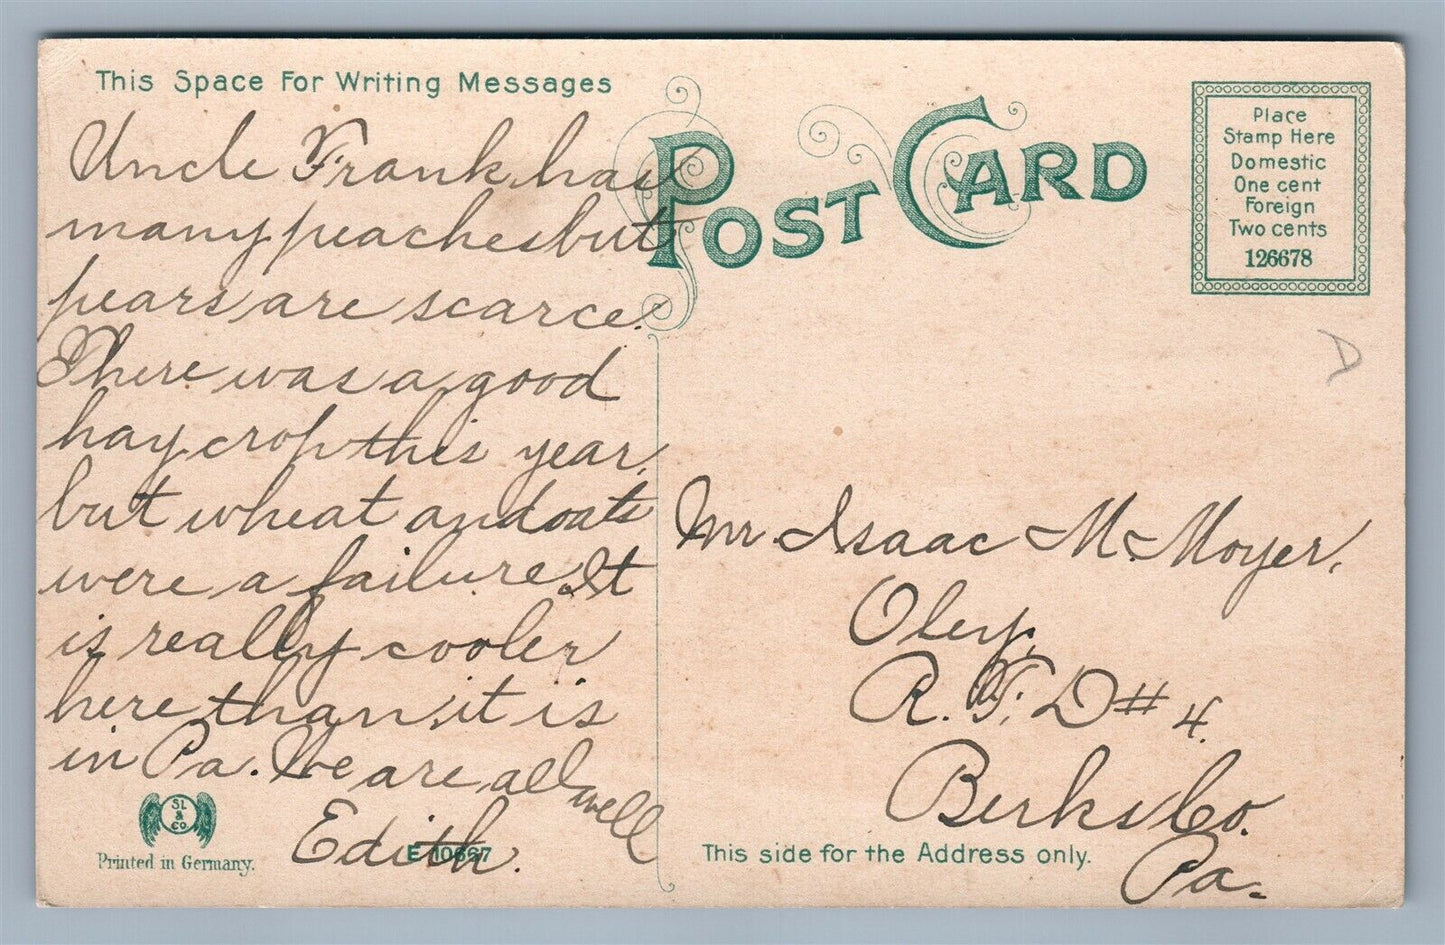 This Space For Writing Messages
Uncle Frank has
many peaches but
pears are scarce.
There was a good
hay crop this year,
but wheat and oats
were a failure. It
is really cooler
here than it is
in Pa. We are all
well
Edith.
SL
&
Co
Printed in Germany.
E 10667
POST CARD
Place
Stamp Here
Domestic
One cent
Foreign
Two cents
126678
D
Mr. Isaac M. Moyer,
Oley,
R. F. D # 4.
Berks Co.
Pa.
This side for the Address only.